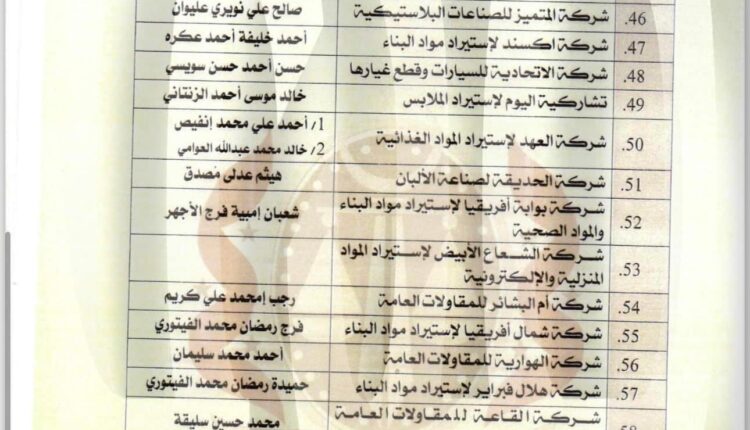 46. شركة المتميز للصناعات البلاستيكية صالح علي نويري عليوان
47. شركة اكسند لإستيراد مواد البناء أحمد خليفة أحمد عكره
48. شركة الاتحادية للسيارات وقطع غيارها حسن أحمد حسن سويسي
49. تشاركية اليوم لإستيراد الملابس خالد موسى أحمد الزنتاني
50. شركة العهد لإستيراد المواد الغذائية 1/ أحمد علي محمد إنفيص
2/ خالد محمد عبدالله العوامي
51. شركة الحديقة لصناعة الألبان هيثم عدلى مُصدق
52. شركة بوابة أفريقيا لإستيراد مواد البناء شعبان إمبية فرج الأجهر
والمواد الصحية
53. شركة الشعاع الأبيض لإستيراد المواد
المنزلية والإلكترونية
54. شركة أم البشائر للمقاولات العامة رجب إمحمد علي كريم
55. شركة شمال أفريقيا لإستيراد مواد البناء فرج رمضان محمد الفيتوري
56. شركة الهوارية للمقاولات العامة أحمد محمد سليمان
57. شركة هلال فبراير لإستيراد مواد البناء حميدة رمضان محمد الفيتوري
58. شركة القاعة للمقاولات العامة محمد حسين سليقة